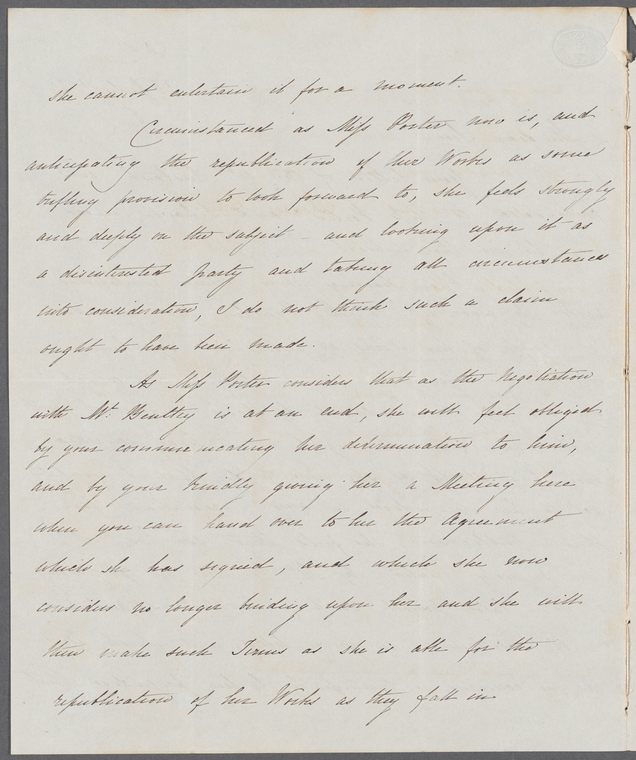 she cannot entertain it for a moment.
Circumstanced as Miss Porter now is, and
anticipating the republication of Her Works as some
trifling provision to look forward to, she feels strongly
and deeply on the subject and looking upon it as
a disinterested party and taking all circumstances
into consideration, I do not think such a claim
ought to have been made.
As Miss Porter considers that as the Negotiation
with Mr. Bentley is at an end, she will feel obliged
by your communicating her determination to him,
and by your kindly giving her a Meeting here
when you can hand over to her the Agreement
which she has signed, and which she now
considers no longer binding upon her and she will
then make such Terms as she is able for the
republication of her Works as they fall in